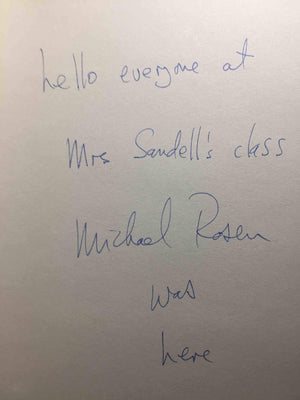 hello everyone at
Mrs Sandell's class
Michael Rosen
was
here